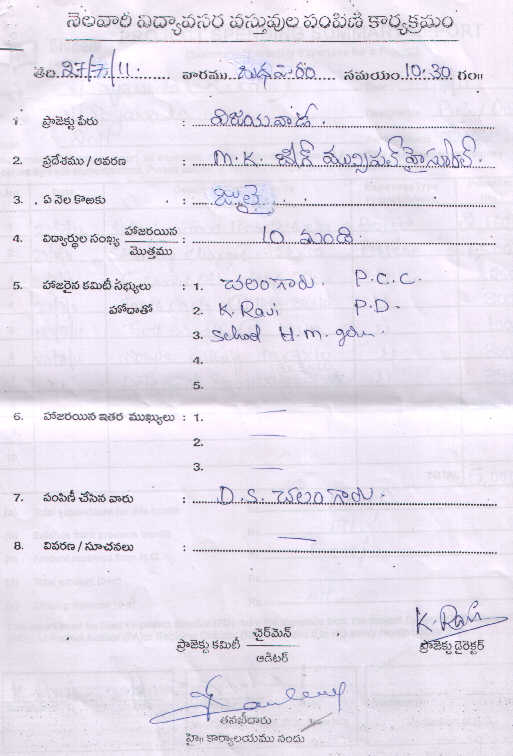 నెలవారీ విద్యావసర వస్తువుల పంపిణి కార్యక్రమం
తేది 27/7/11. వారము బుధవారం సమయం 10.30 గం॥
1. ప్రాజెక్టు పేరు : విజయవాడ.
2. ప్రదేశము / ఆవరణ : M.K. బేగ్ మున్సిపల్ హైస్కూల్.
3. ఏ నెల కొఱకు : జులై
4. విద్యార్థుల సంఖ్య హాజరయిన / మొత్తము : 10 మంది.
5. హాజరైన కమిటీ సభ్యులు : 1. చలంగారు. P.C.C.
హోదాతో 2. K. Ravi P.D.
3. School H.M. garu.
4.
5.
6. హాజరయిన ఇతర ముఖ్యులు : 1. —
2. —
3. —
7. పంపిణీ చేసిన వారు : D.S. చలంగారు.
8. వివరణ / సూచనలు : —
K. Ravi
ప్రాజెక్టు కమిటీ చైర్‌మెన్ / ఆడిటర్ ప్రాజెక్టు డైరెక్టర్
తనఖీదారు
హై॥ కార్యాలయము నందు